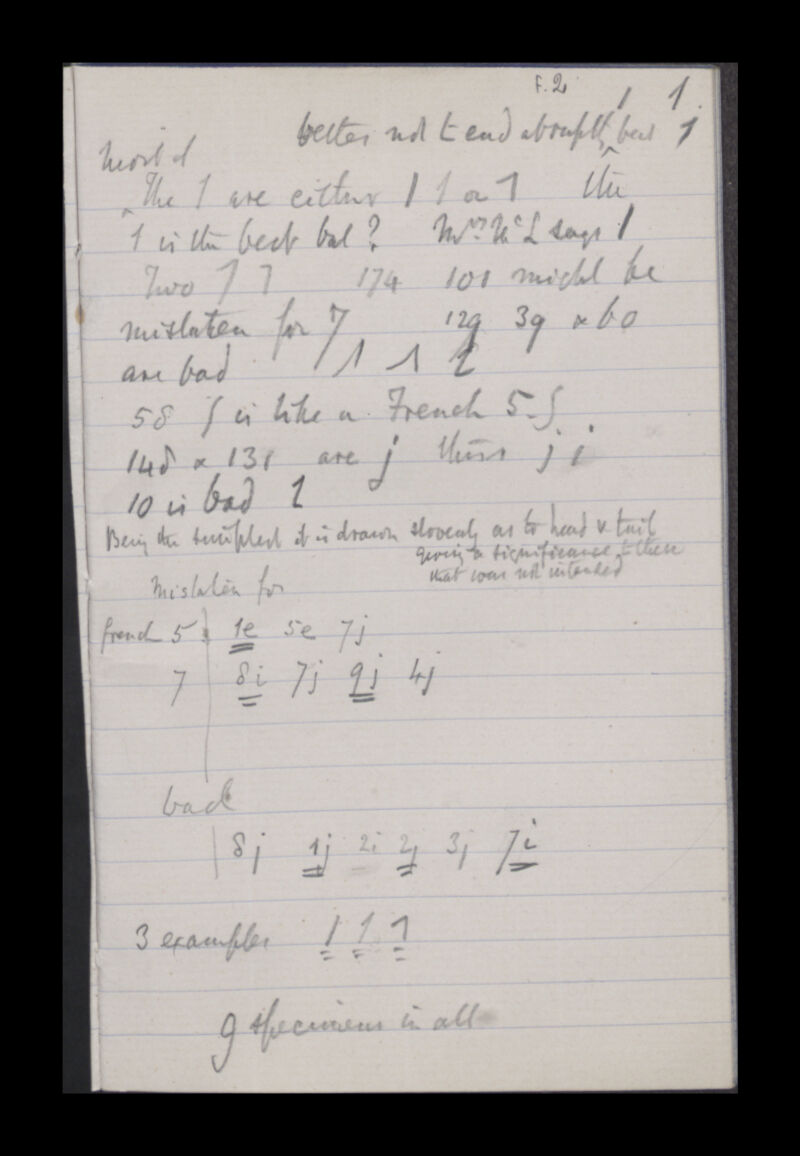 F.2
1 1
better not to end abruptly best 1
Most of
The 1 are either 1 1 or 1 the
1 is the best but? Mrs McL says 1
Two 7 7 174 101 might be
mistaken for 7 129 39 & 60
are bad 1 1 1
58 ʃ is like a French 5 ʃ
148 & 131 are j thus j j
10 is bad 1
Being the simplest it is drawn slovenly as to head & tail
giving a significance to these
that was not intended
Mistaken for
french 5 1e 5e 7j
7 8i 7j 9j 4j
bad
8j 1j 2i 2j 3j 7i
3 examples 1 1 1
9 specimens in all